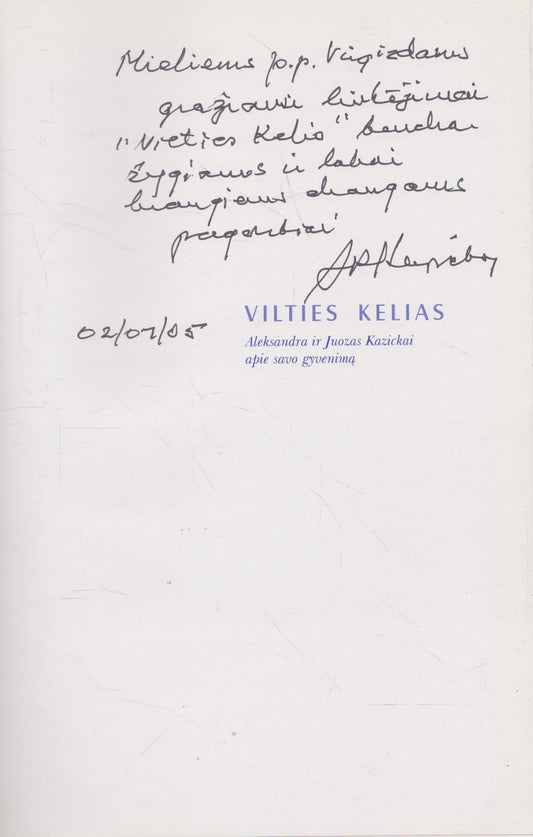 Mieliems p.p. Vingizdams
gražiausi linkėjimai
"Vilties Kelio" bendra
žygiams ir labai
brangiems draugams
pagarbiai
02/07/05
VILTIES KELIAS
Aleksandra ir Juozas Kazickai
apie savo gyvenimą